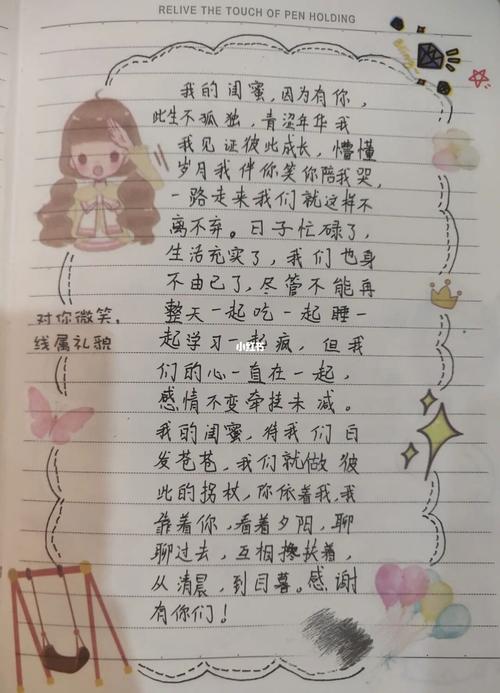 RELIVE THE TOUCH OF PEN HOLDING
我的闺蜜,因为有你,
此生不孤独,青涩年华我
我见证彼此成长,懵懂
岁月我伴你笑你陪我哭,
一路走来我们就这样不
离不弃。日子忙碌了,
生活充实了,我们也身
不由己了,尽管不能再
整天一起吃一起睡一
起学习一起疯,但我
们的心一直在一起,
感情不变牵挂未减。
我的闺蜜,待我们白
发苍苍,我们就做彼
此的拐杖,你依着我,我
靠着你,看着夕阳,聊
聊过去,互相搀扶着,
从清晨,到日暮。感谢
有你们!
对你微笑,
线属礼貌
小红书